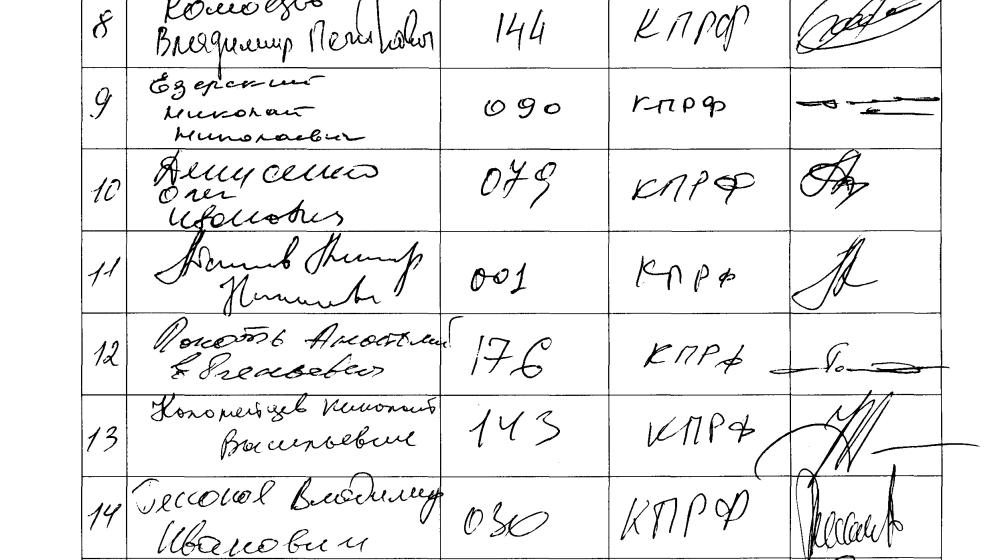 8 Владимир Петрович 144 КПРФ
9 Езерский
Николай
Николаевич 090 КПРФ
10 Денисенко
Олег
Иванович 079 КПРФ
11 001 КПРФ
12 Локоть Анатолий
Евгеньевич 176 КПРФ
13 Коломейцев Николай
Васильевич 143 КПРФ
14 Владимир
Иванович 030 КПРФ